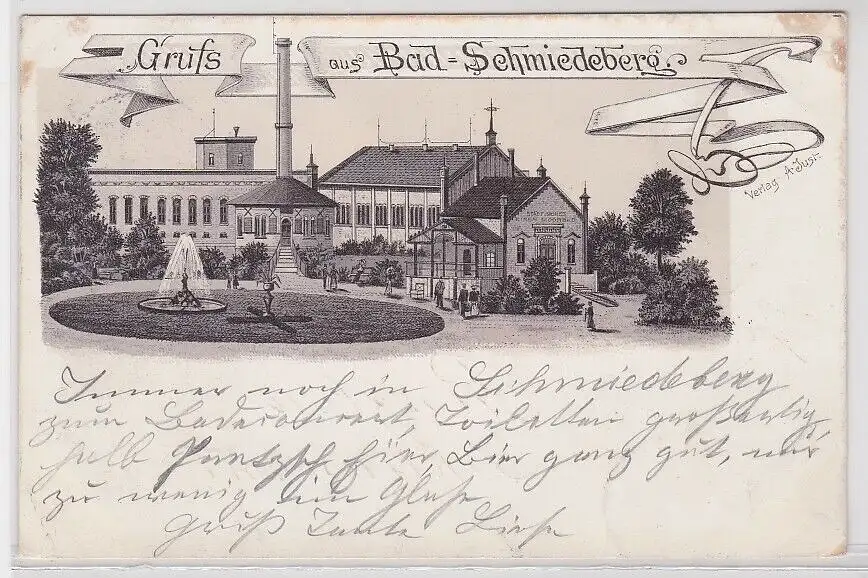 Gruſs
aus Bad=Schmiedeberg.
Verlag A. Just.
Immer noch in Schmiedeberg
zum Badeconcert, Toiletten großartig,
halb hier, Bier ganz gut, nur
zu wenig im Glase
Gruß Tante Liese